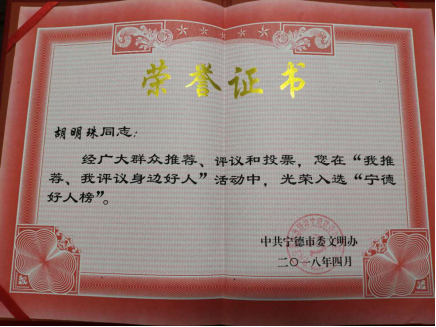 荣誉证书
胡明珠同志：
经广大群众推荐、评议和投票，您在“我推
荐、我评议身边好人”活动中，光荣入选“宁德
好人榜”。
中共宁德市委文明办
二〇一八年四月